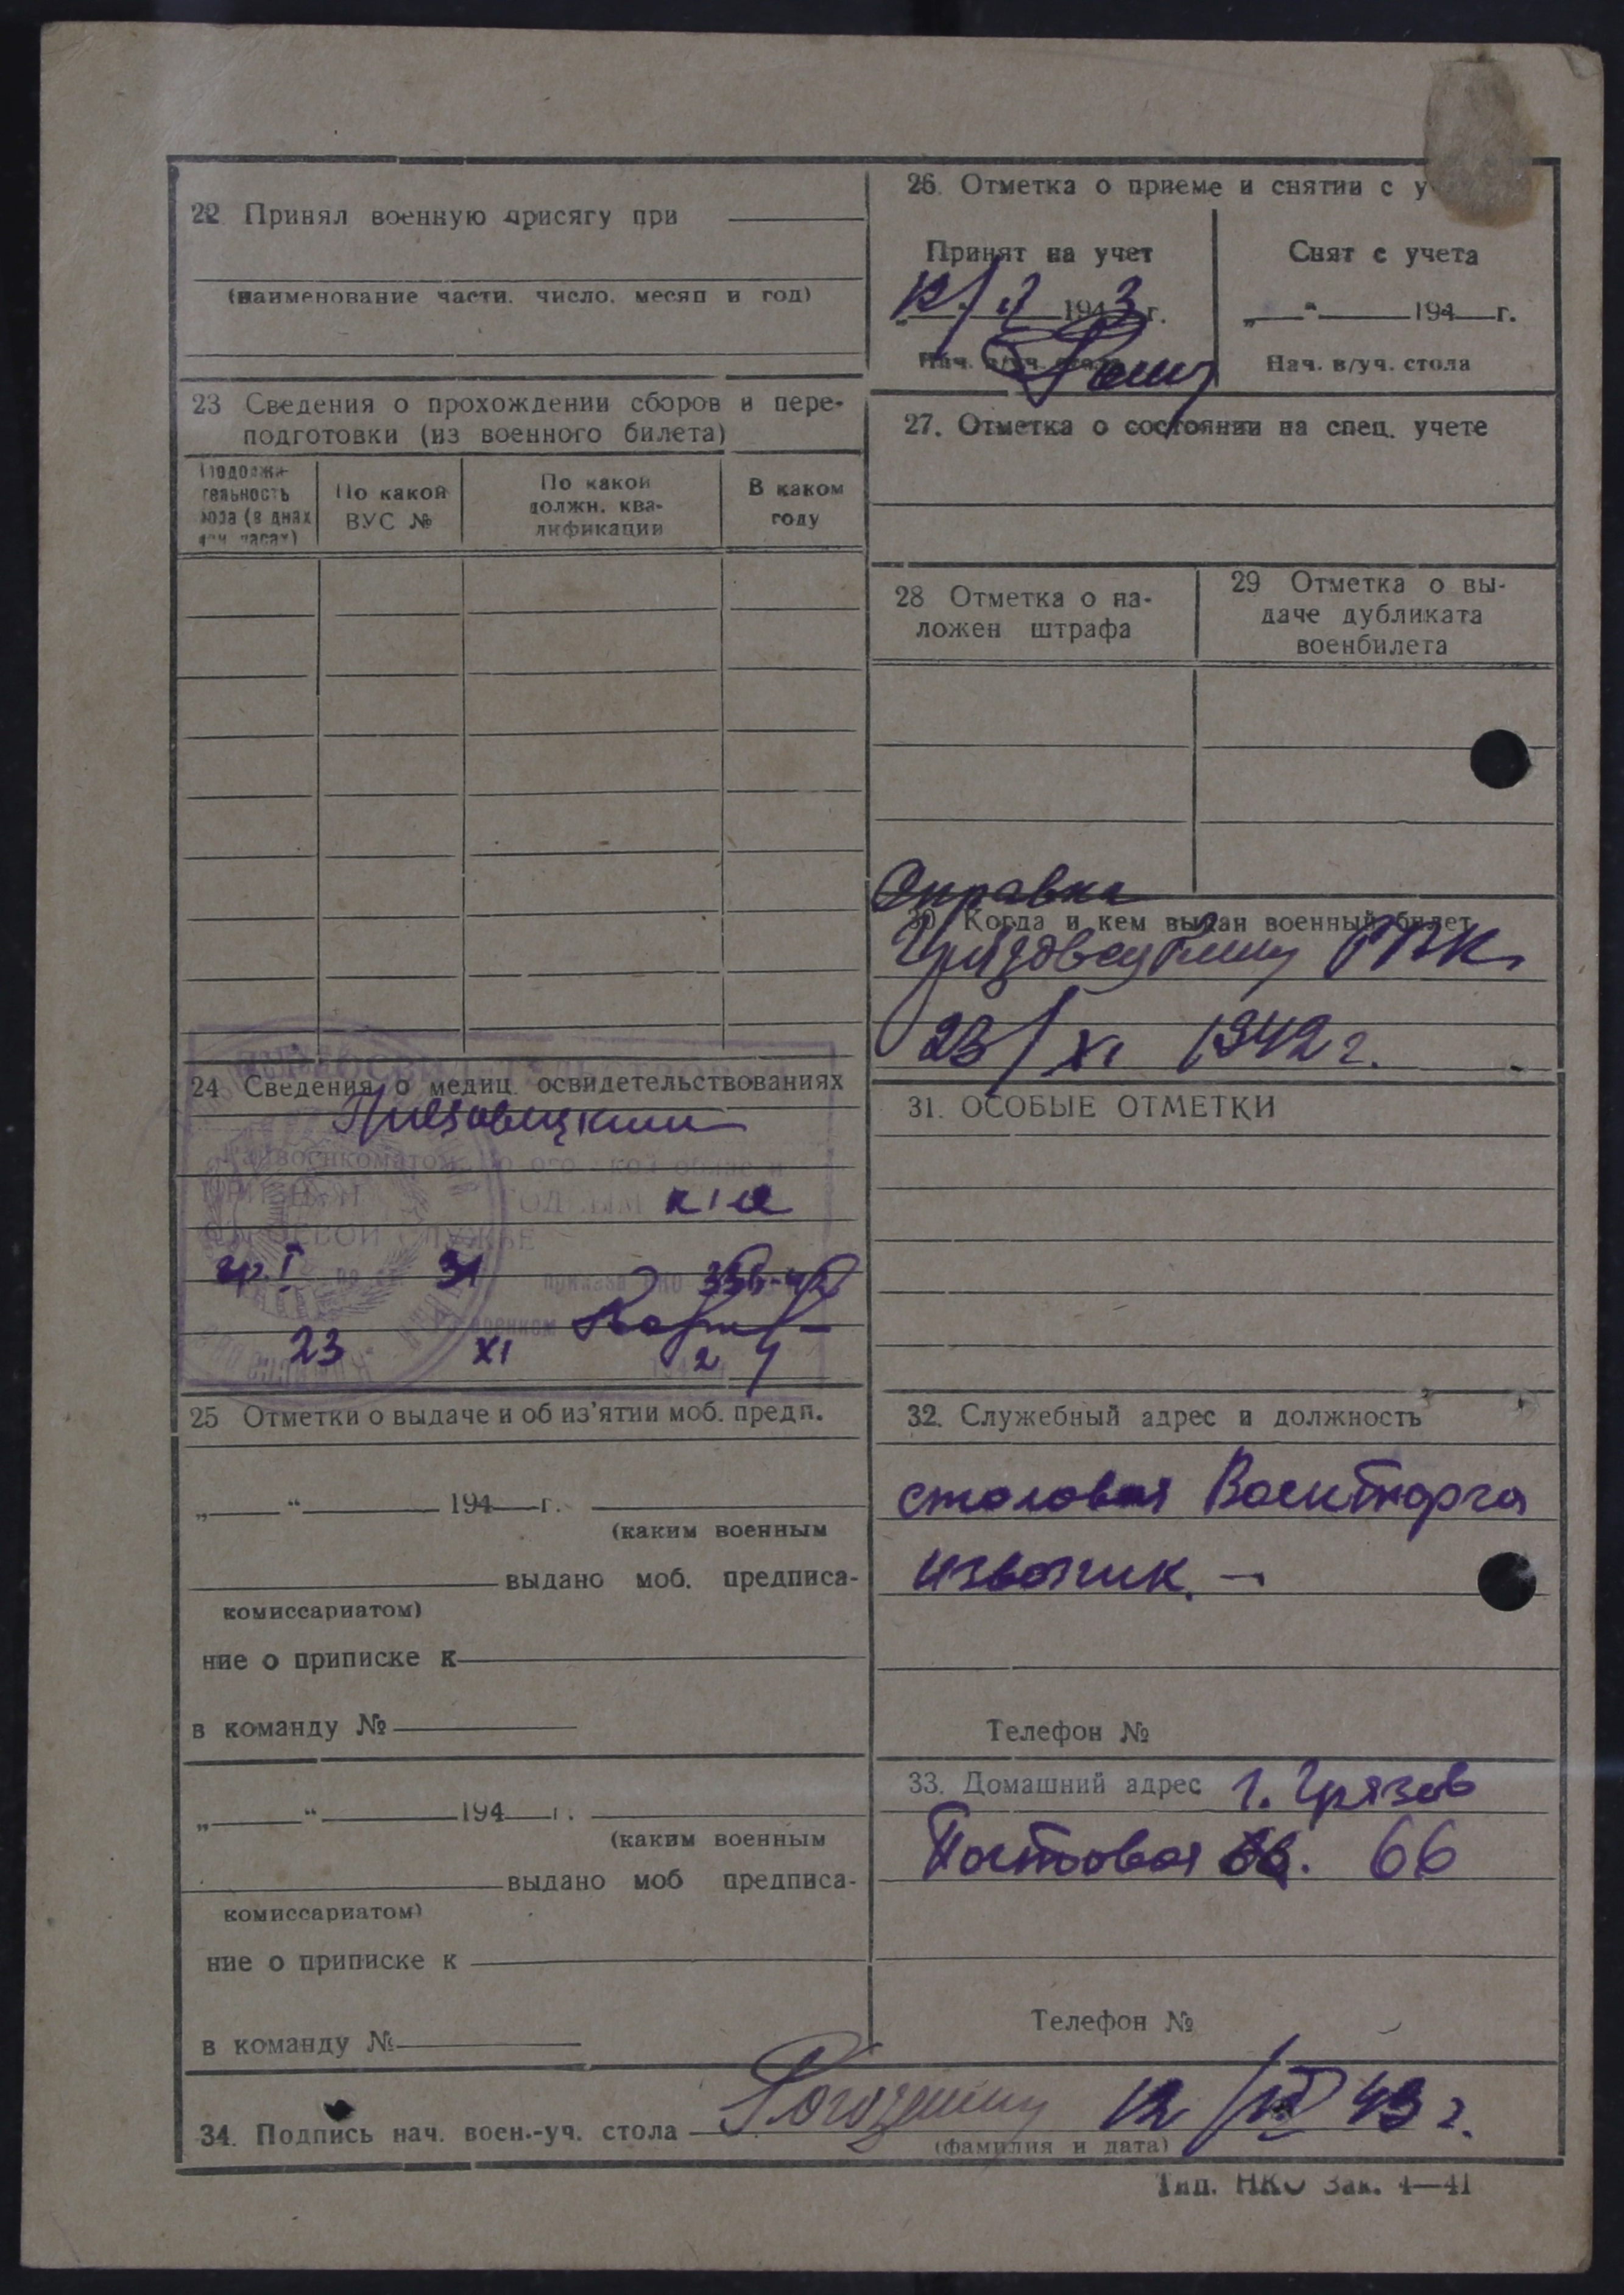 22 Принял военную присягу при
(наименование части, число, месяц и год)
23 Сведения о прохождении сборов и пере-
подготовки (из военного билета)
Продолжи-
тельность
бора (в днах
или часах)
По какой
ВУС №
По какой
должн. ква-
лификации
В каком
году
24 Сведения о медиц освидетельствованиях
Грязовецким
Райвоенкоматом
ГОДНЫМ
гр. I 31 приказа НКО 336-42
23 XI 2
25 Отметки о выдаче и об из'ятии моб. предп.
„ “ 194 г.
(каким военным
выдано моб. предписа-
комиссариатом)
ние о приписке к
в команду №
„ “ 194 г.
(каким военным
выдано моб предписа-
комиссариатом)
ние о приписке к
в команду №
26. Отметка о приеме и снятии с у
Принят на учет
12/ 1943 г.
Нач. в/уч. стола
Снят с учета
„ “ 194 г.
Нач. в/уч. стола
27. Отметка о состоянии на спец. учете
28 Отметка о на-
ложен штрафа
29 Отметка о вы-
даче дубликата
военбилета
Справка
30. Когда и кем выдан военный билет
Грязовецким РВК
23/XI 1942 г.
31. ОСОБЫЕ ОТМЕТКИ
32. Служебный адрес и должность
столовая Военторга
извозчик. –
Телефон №
33. Домашний адрес г. Грязов
66
Телефон №
34. Подпись нач. воен.-уч. стола 12/ 43 г.
(фамилия и дата)
Тип. НКО Зак. 4—41